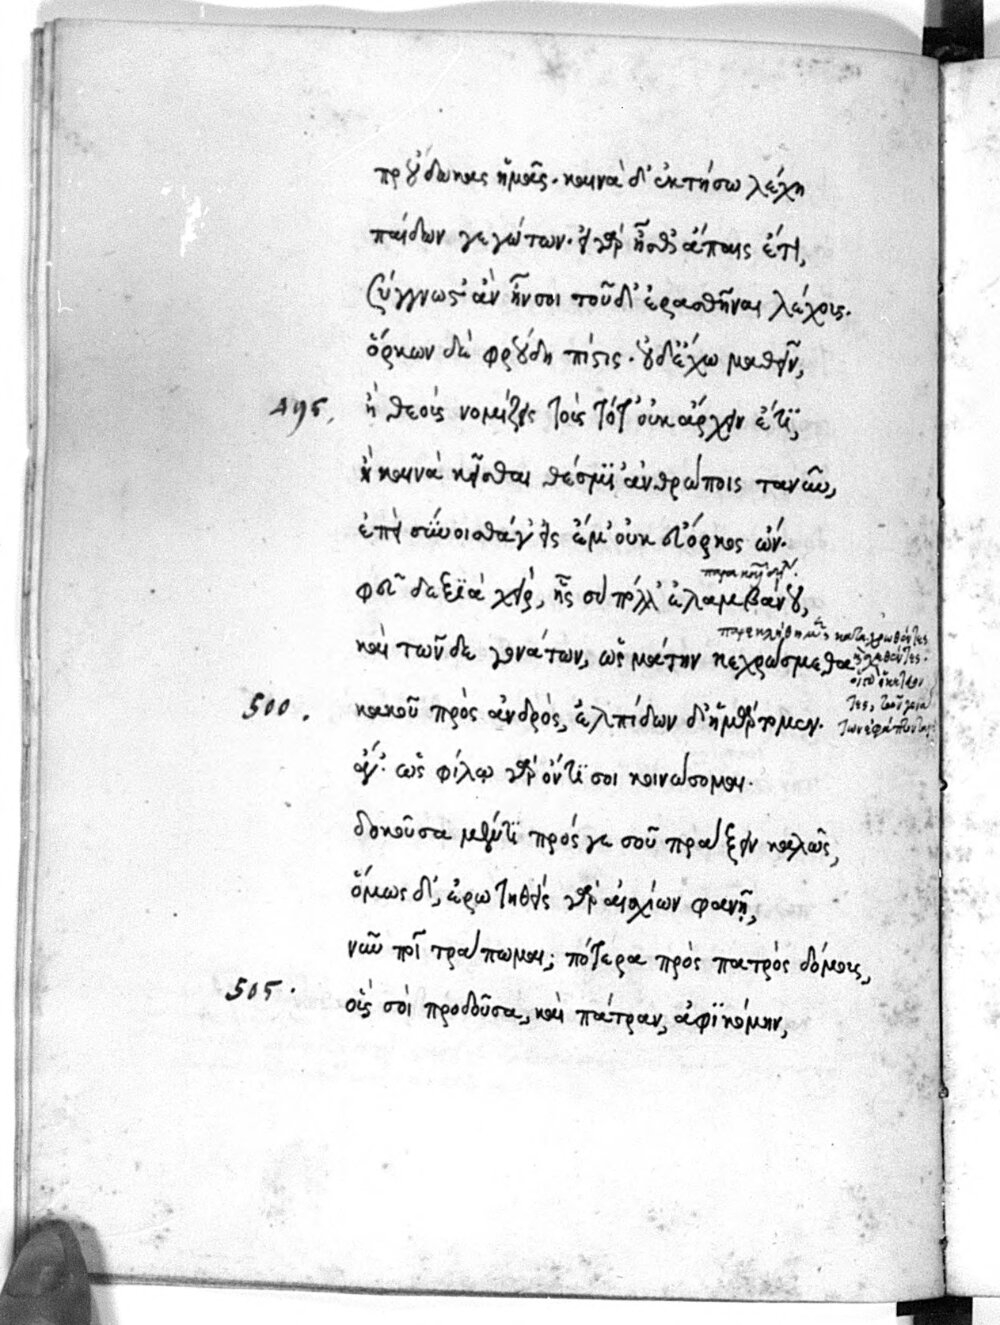 προύδωκας ἡμᾶς· καινὰ δ' ἐκτήσω λέχη
παίδων γεγώτων· εἰ γὰρ ἦσθ' ἄπαις ἔτι,
ξύγγνωστ' ἂν ἦν σοι τοῦδ' ἐρασθῆναι λέχους.
ὅρκων δὲ φρούδη πίστις· οὐδ' ἔχω μαθεῖν,
495. ἢ θεοὺς νομίζεις τοὺς τότ' οὐκ ἄρχειν ἔτι,
ἢ καινὰ κεῖσθαι θέσμι' ἀνθρώποις τανῦν,
ἐπεὶ σύνοισθά γ' εἰς ἔμ' οὐκ εὔορκος ὤν.
φεῦ δεξιὰ χεὶρ, ἧς σὺ πόλλ' ἐλαμβάνου,
καὶ τῶνδε γονάτων, ὡς μάτην κεχρώσμεθα
500. κακοῦ πρὸς ἀνδρὸς, ἐλπίδων δ' ἡμάρτομεν.
ἄγ' ὡς φίλῳ γὰρ ὄντι σοι κοινώσομαι.
δοκοῦσα μέν τι πρός γε σοῦ πράξειν καλῶς,
ὅμως δ', ἐρωτηθεὶς γὰρ αἰσχίων φανῇ,
νῦν ποῖ τράπωμαι; πότερα πρὸς πατρὸς δόμους,
505. οὓς σοὶ προδοῦσα, καὶ πάτραν, ἀφικόμην,